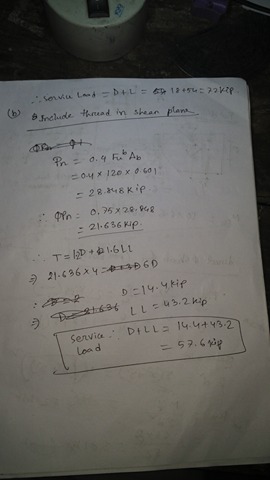 ∴ Service Load = D+L = 18+54 = 72 kip
(b) Include thread in shear plane
Pn = 0.4 Fu^b Ab
= 0.4 × 120 × 0.601
= 28.848 kip
∴ ϕPn = 0.75 × 28.848
= 21.636 kip.
∴ T = 1.2D + 1.6LL
⇒ 21.636 × 4 = 6D
∴ D = 14.4 kip
⇒ LL = 43.2 kip
Service ∴ D+LL = 14.4+43.2
Load = 57.6 kip